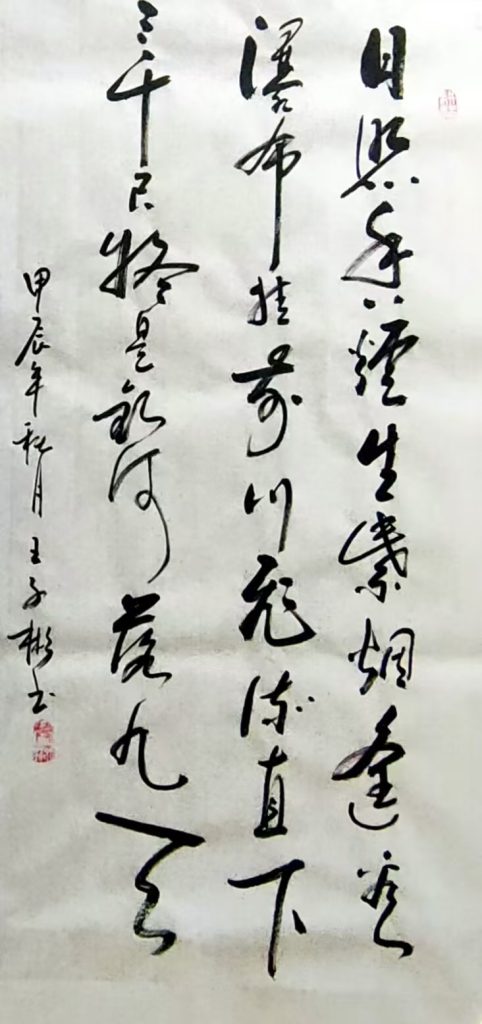 日照香爐生紫烟遥看
瀑布挂前川飛流直下
三千尺疑是銀河落九天
甲辰年秋月王子彬书